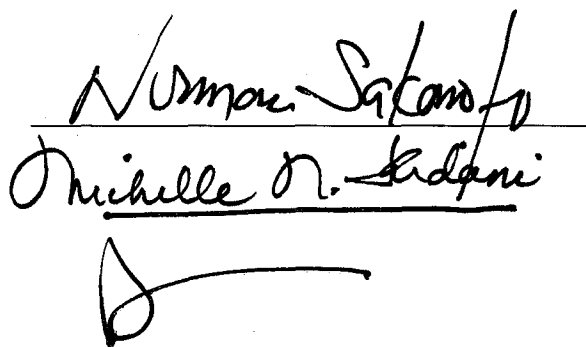 Norman Sakamoto
Michelle N. Kidani